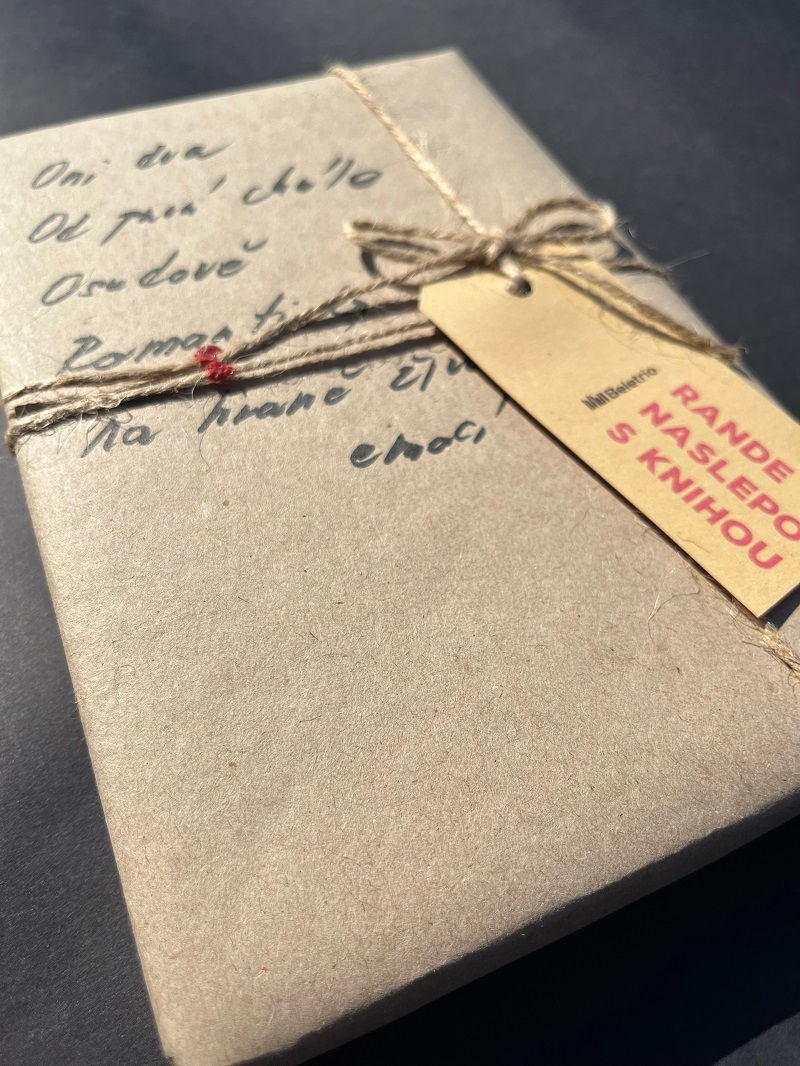 Oni dva
Od první chvíle
Osudově
na hraně
emocí
Beletrio
RANDE
NASLEPO
S KNIHOU